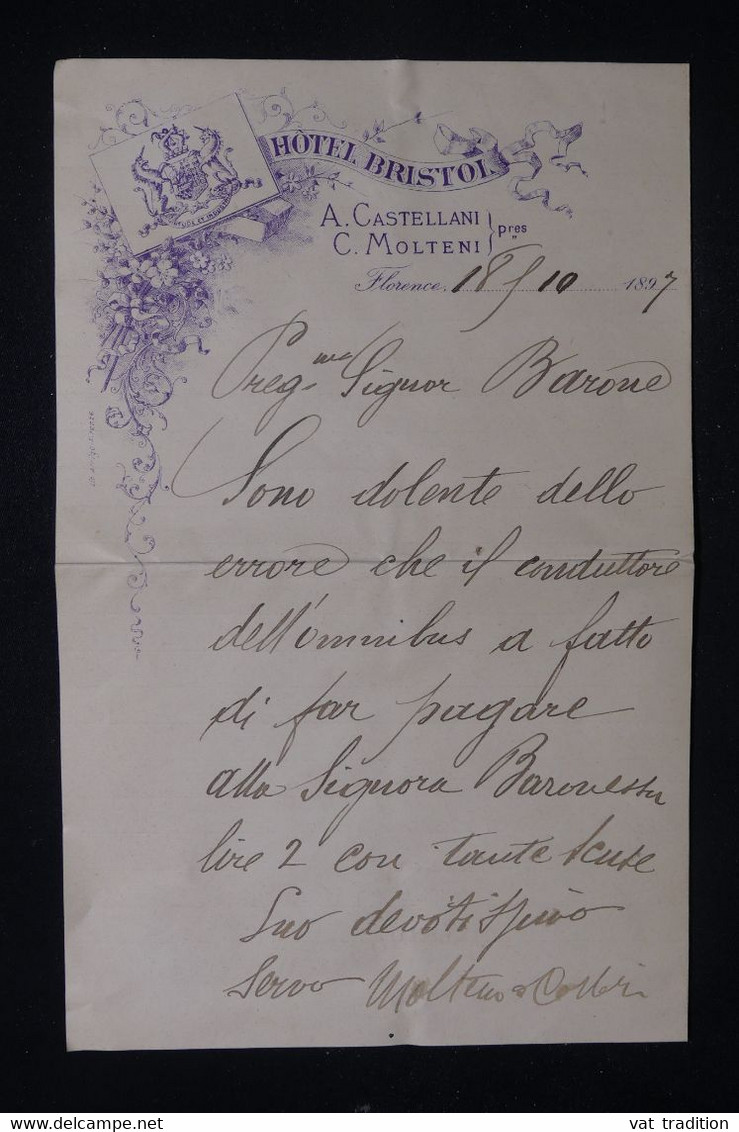 HÔTEL BRISTOL
A. CASTELLANI
C. MOLTENI } pres
Florence, 18/10 1897
Preg.mo Signor Barone
Sono dolente dello
errore che il conduttore
dell'omnibus a fatto
di far pagare
alla Signora Baronessa
lire 2 con tante scuse
Suo devotissimo
Servo Molteni
vat tradition